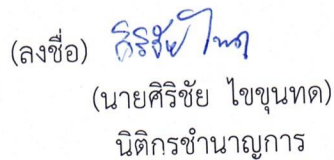 (ลงชื่อ) ศิริชัย
(นายศิริชัย ไขขุนทด)
นิติกรชำนาญการ